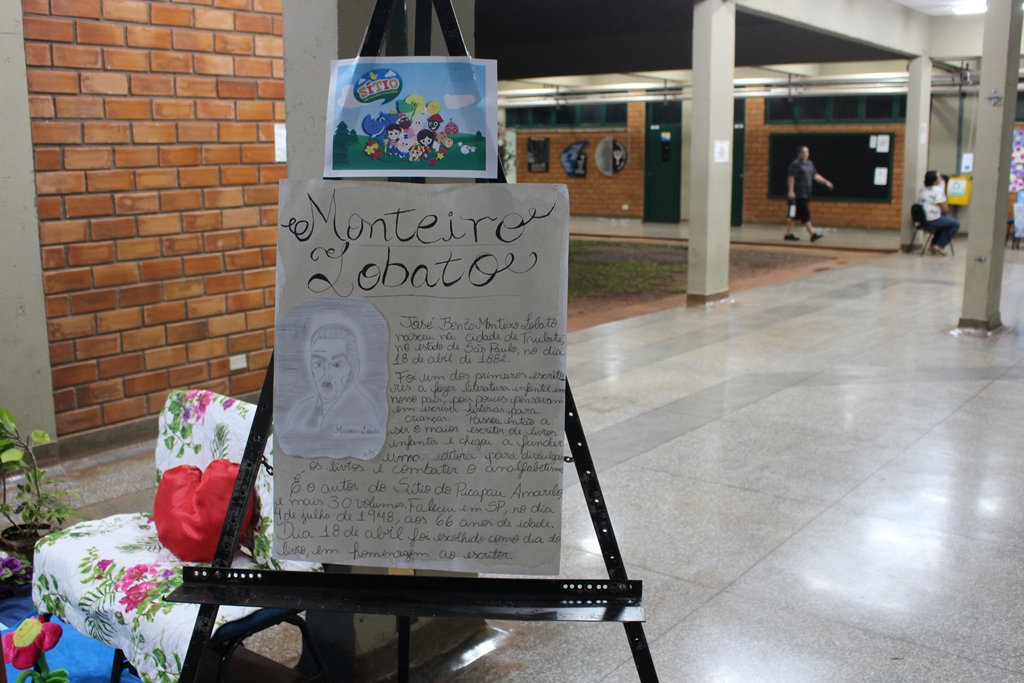 SÍTIO
Monteiro
Lobato
José Bento Monteiro Lobato
nasceu na cidade de Taubaté,
no estado de São Paulo, no dia
18 de abril de 1882.
Foi um dos primeiros escrito
res a fazer literatura infantil em
nosso país, pois poucos pensavam
em escrever histórias para
crianças. Passou então a
ser o maior escritor de livros
infantis e chegou a fundar
uma editora para divulgar
os livros e combater o analfabetismo
É o autor do Sítio do Picapau Amarelo
e mais 30 volumes. Faleceu em SP, no dia
4 de julho de 1948, aos 66 anos de idade.
Dia 18 de abril foi escolhido como dia do
livro, em homenagem ao escritor.
Monteiro Lobato